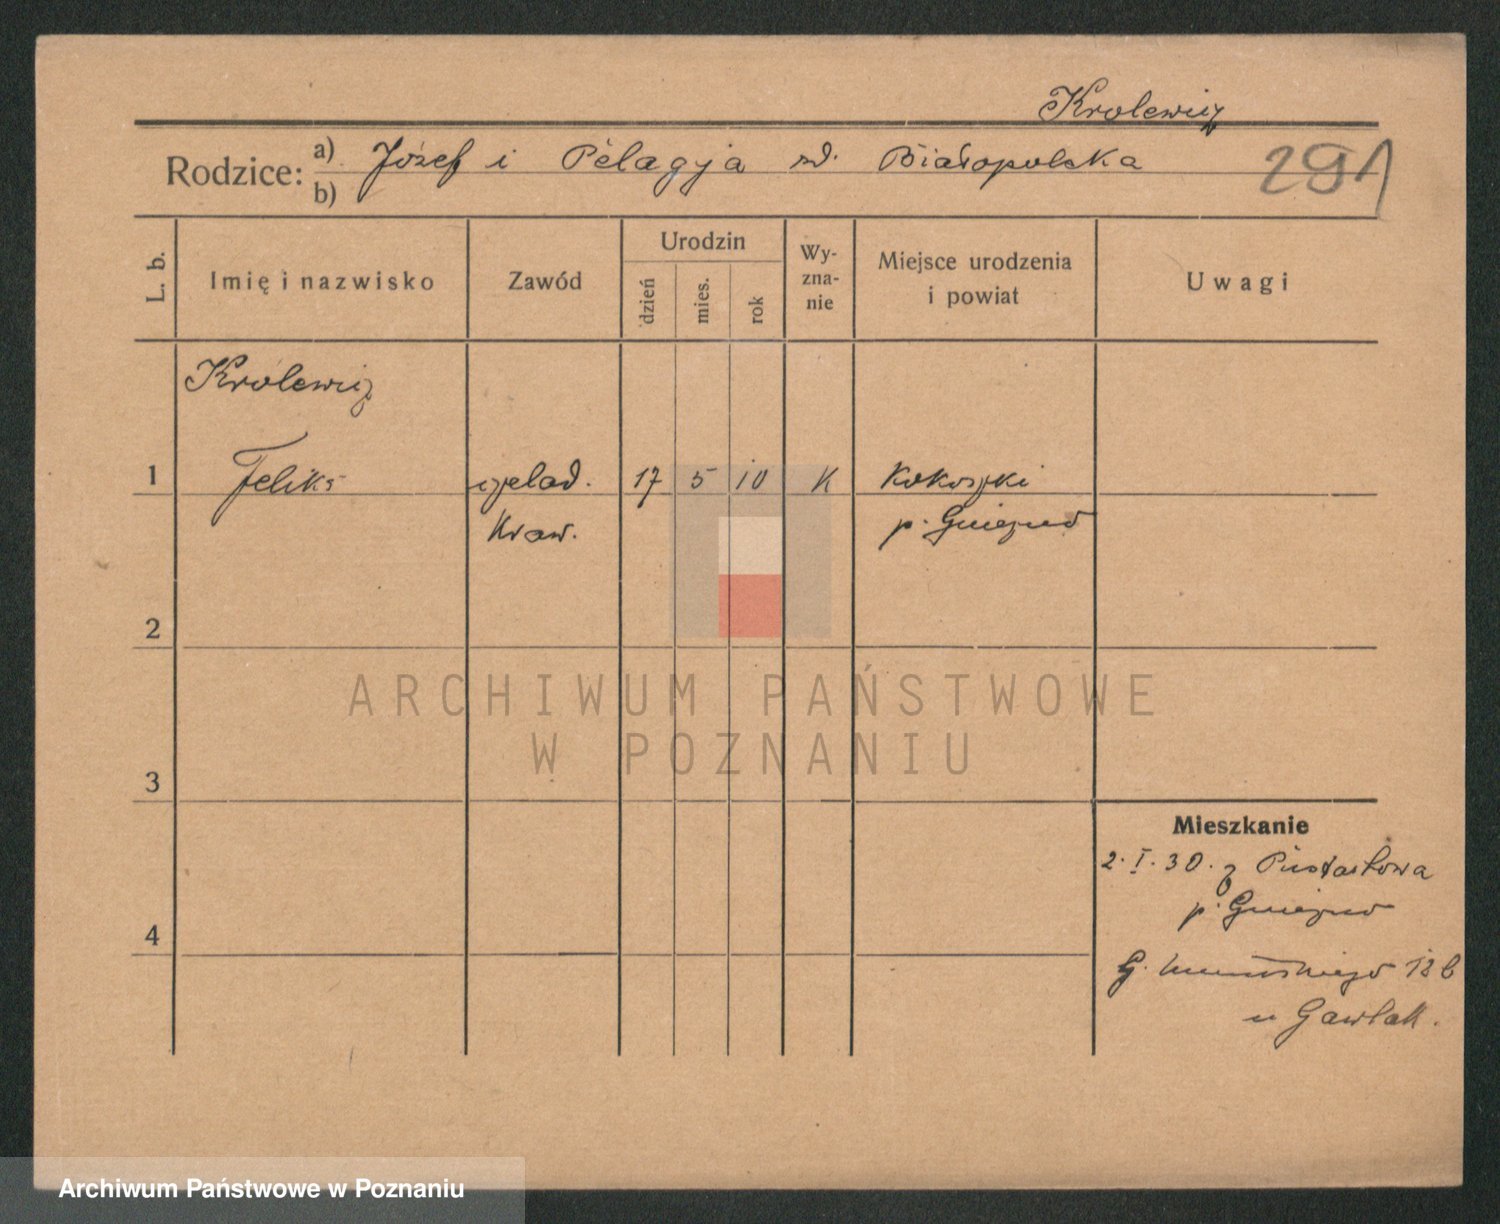 Krolewicz
Rodzice: a) Józef i Pelagja zd. Białopolska
b)
291
L. b.
Imię i nazwisko
Zawód
Urodzin
dzień
mies.
rok
Wy-
zna-
nie
Miejsce urodzenia
i powiat
Uwagi
Królewicz
1 Feliks czelad. 17 5 10 K Kokoszki
Kraw. p. Gniezno
2
3
4
Mieszkanie
2. I. 30. z Piustasłowa
p. Gniezno
G. 18 b
u Gawlak.
ARCHIWUM PAŃSTWOWE
W POZNANIU
Archiwum Państwowe w Poznaniu